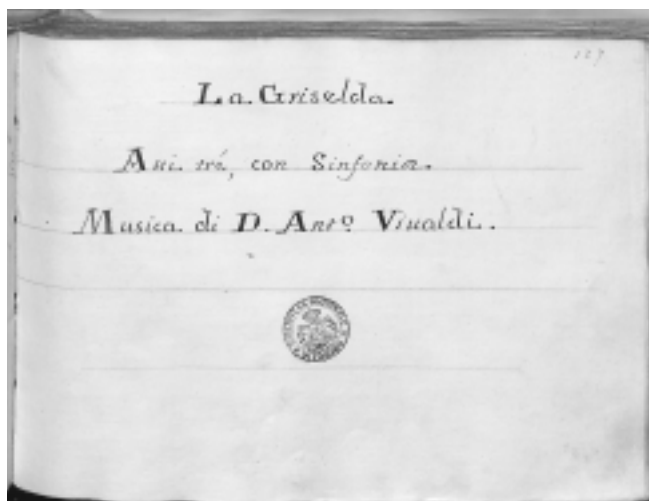 127
La Griselda.
Atti tré, con Sinfonia.
Musica di D. Anto. Viualdi.